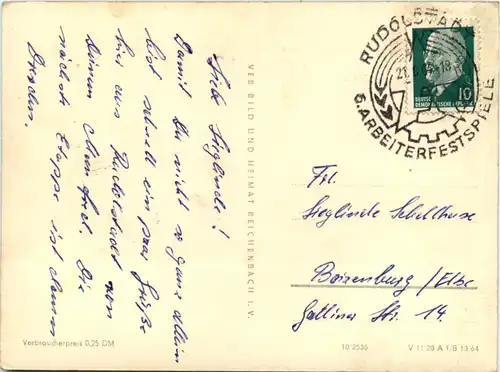 Liebe Sieglinde!
Damit Du nicht so ganz allein
bist schnell ein paar Grüße
hier aus Rudolstadt von
Deinem Manfred. Die
nächste Etappe ist dann
Dresden.
VEB BILD UND HEIMAT REICHENBACH I. V.
RUDOLSTADT
18
6. ARBEITERFESTSPIELE
10
DEUTSCHE
DEMOKRATISCHE REPUBLIK
Frl.
Sieglinde
Boizenburg / Elbe
Str. 14.
Verbraucherpreis 0,25 DM
10 2535
V 11 28 A 1/B 13 64